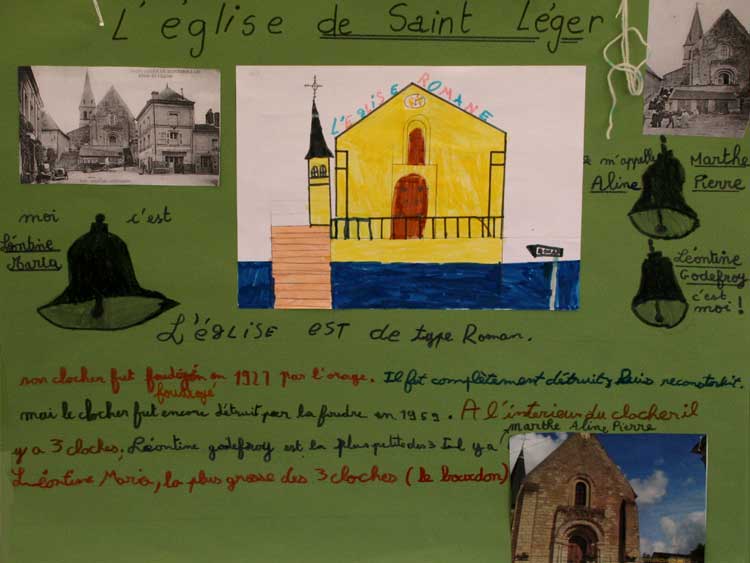 L'église de Saint Léger
L'EGLISE ROMANE
je m'appelle Marthe
Aline Pierre
moi c'est
Léontine
Maria
Léontine
Godefroy
c'est
moi !
L'église EST de type Roman.
son clocher fut en 1927 par l'orage. Il fut complètement détruit, puis
foudroyé
mai le clocher fut encore détruit par la foudre en 1959. A l'intérieur du clocher il
y a 3 cloches. Léontine godefroy est la plus petite des 3 Il y a
marthe Aline Pierre
Léontine Maria, la plus grosse des 3 cloches (le bourdon)